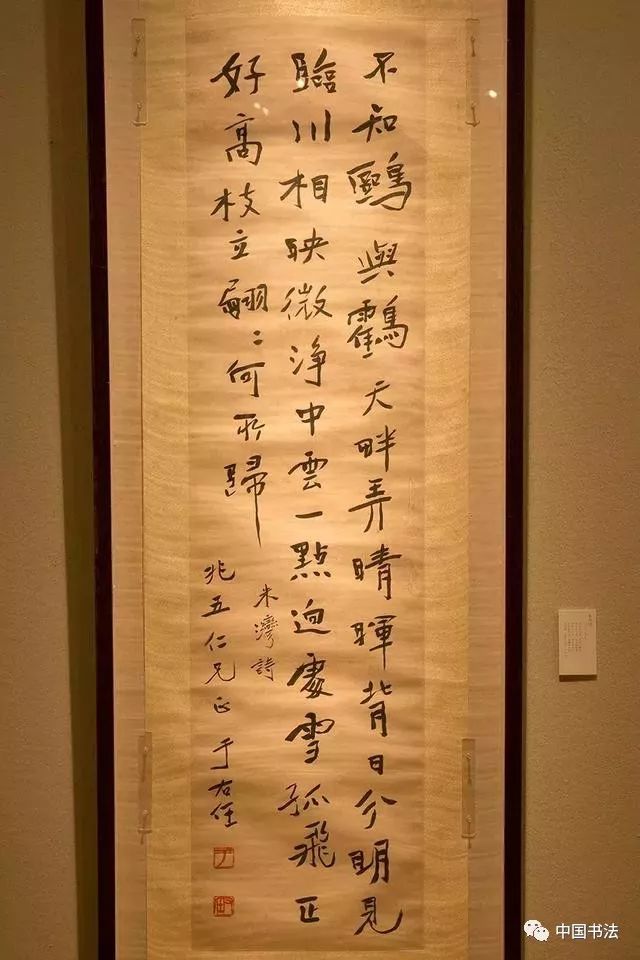 不知鷗與鶴天畔弄晴暉背日分明見
臨川相映微淨中雲一點迥處雪孤飛正
好高枝立翩〻何所歸
朱灣詩
兆五仁兄正 于右任
中国书法